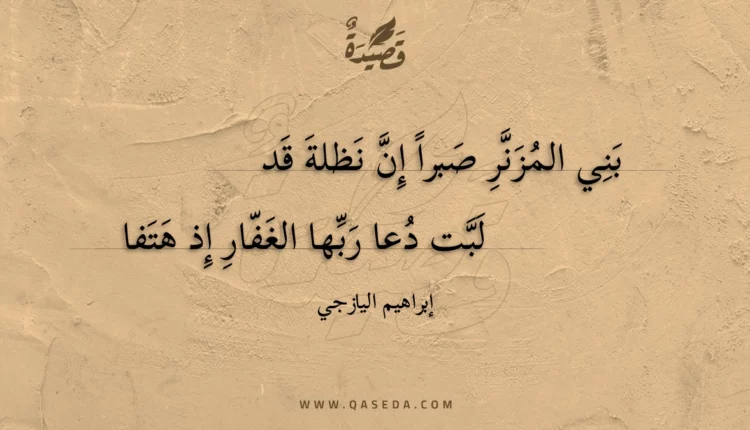 قَصِيدَةٌ
بَنِي المُزَنَّرِ صَبراً إِنَّ نَظلةَ قَد
لَبَّت دُعا رَبِّها الغَفّارِ إِذ هَتَفا
إبراهيم اليازجي
WWW.QASEDA.COM